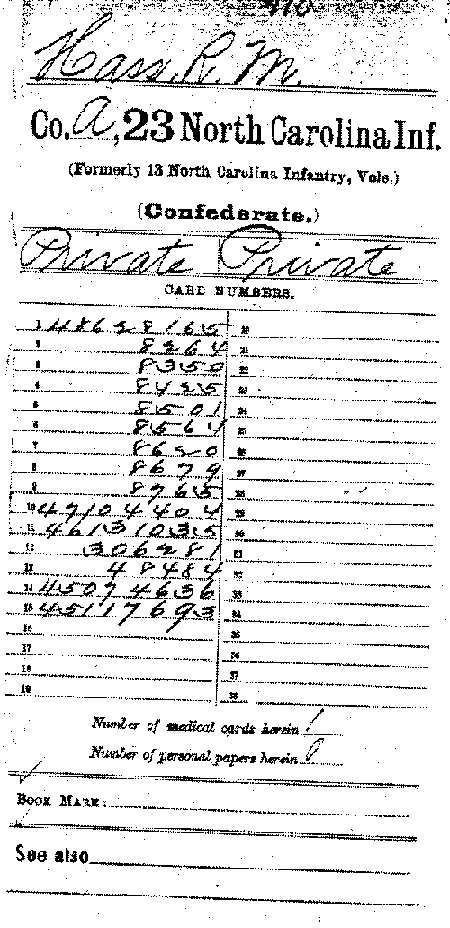 Hass, R. M.
Co. A, 23 North Carolina Inf.
(Formerly 13 North Carolina Infantry, Vols.)
(Confederate.)
Private Private
CARD NUMBERS.
1 48628165 20
2 8264 21
3 8350 22
4 8425 23
5 8501 24
6 8564 25
7 8620 26
8 8679 27
9 8765 28
10 47104404 29
11 46131035 30
12 306281 31
13 48484 32
14 45074636 33
15 45117693 34
16 35
17 36
18 37
19 38
Number of medical cards herein 1
Number of personal papers herein 0
BOOK MARK:
See also